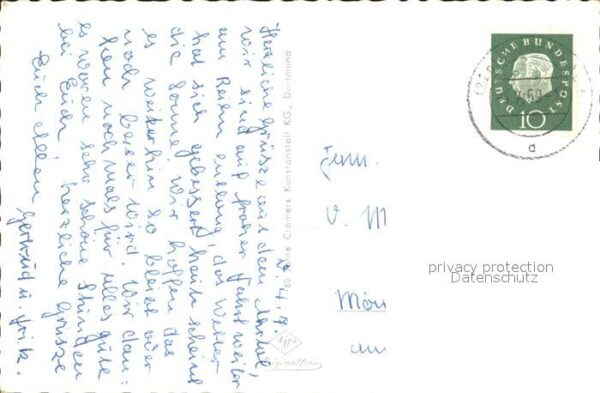 d. 4. 9.
Herzliche Grüsse aus dem Ahrtal,
wir sind auf froher Fahrt weiter
am Rhein entlang, das Wetter
hat sich gebessert, heute scheint
die Sonne. Wir hoffen das
es weiterhin so bleibt oder
noch besser wird. Wir dan:
ken nochmals für alles gute
es waren sehr schöne Stunden
bei Euch. herzliche Grüsse
Euch allen
Gertrud u. Erik.
60 Jahre Cramers Kunstanstalt KG., Dortmund
Originalfoto
DEUTSCHE BUNDESPOST
10
a
Fam.
V. M
privacy protection
Datenschutz
am